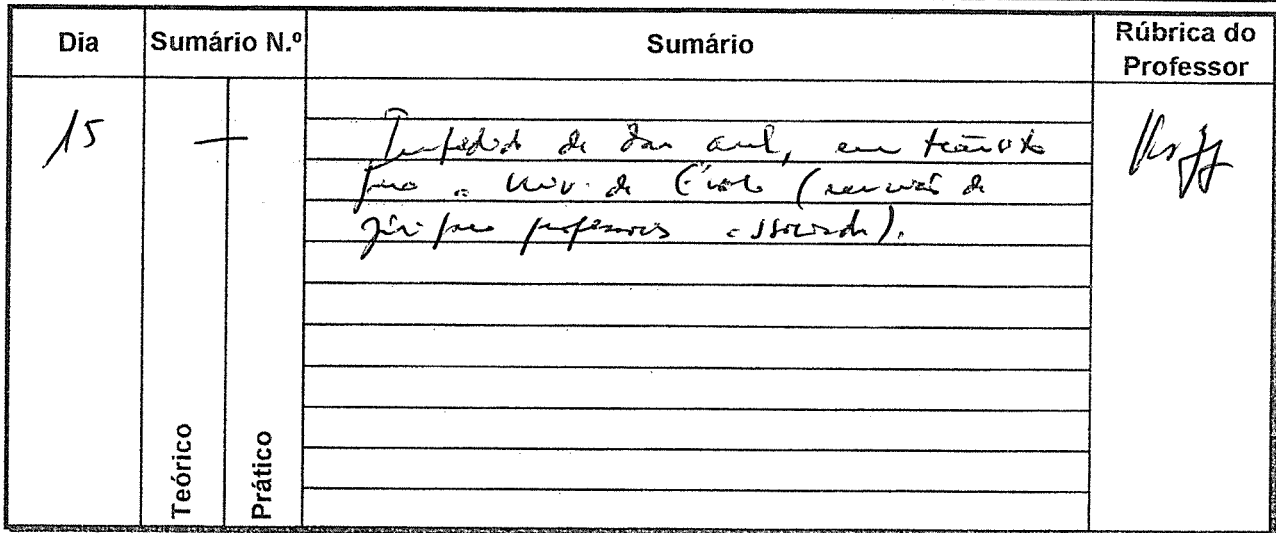 Dia Sumário N.º Sumário Rúbrica do Professor
15 —
Impedido de dar aula, em trânsito
para a Univ. de Évora (reunião de
júri para professores associados).
Teórico Prático